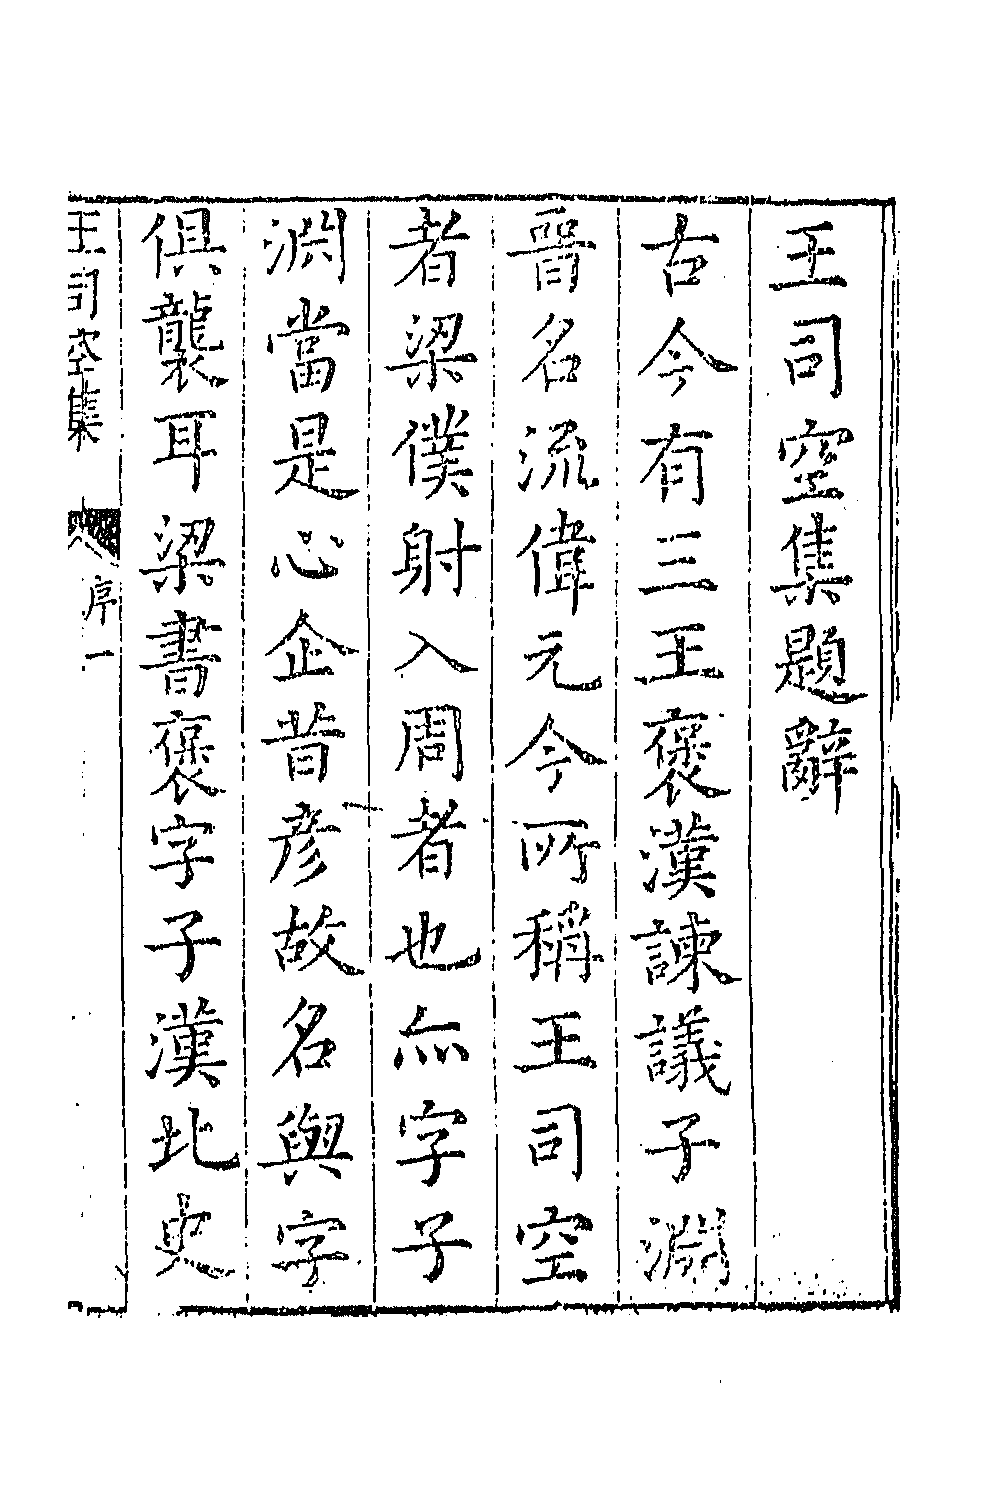 王司空集題辭
古今有三王褒漢諫議子淵
晉名流偉元今所稱王司空
者梁僕射入周者也亦字子
淵當是心企昔彥故名與字
俱襲耳梁書褒字子漢北史
王司空集
序
一